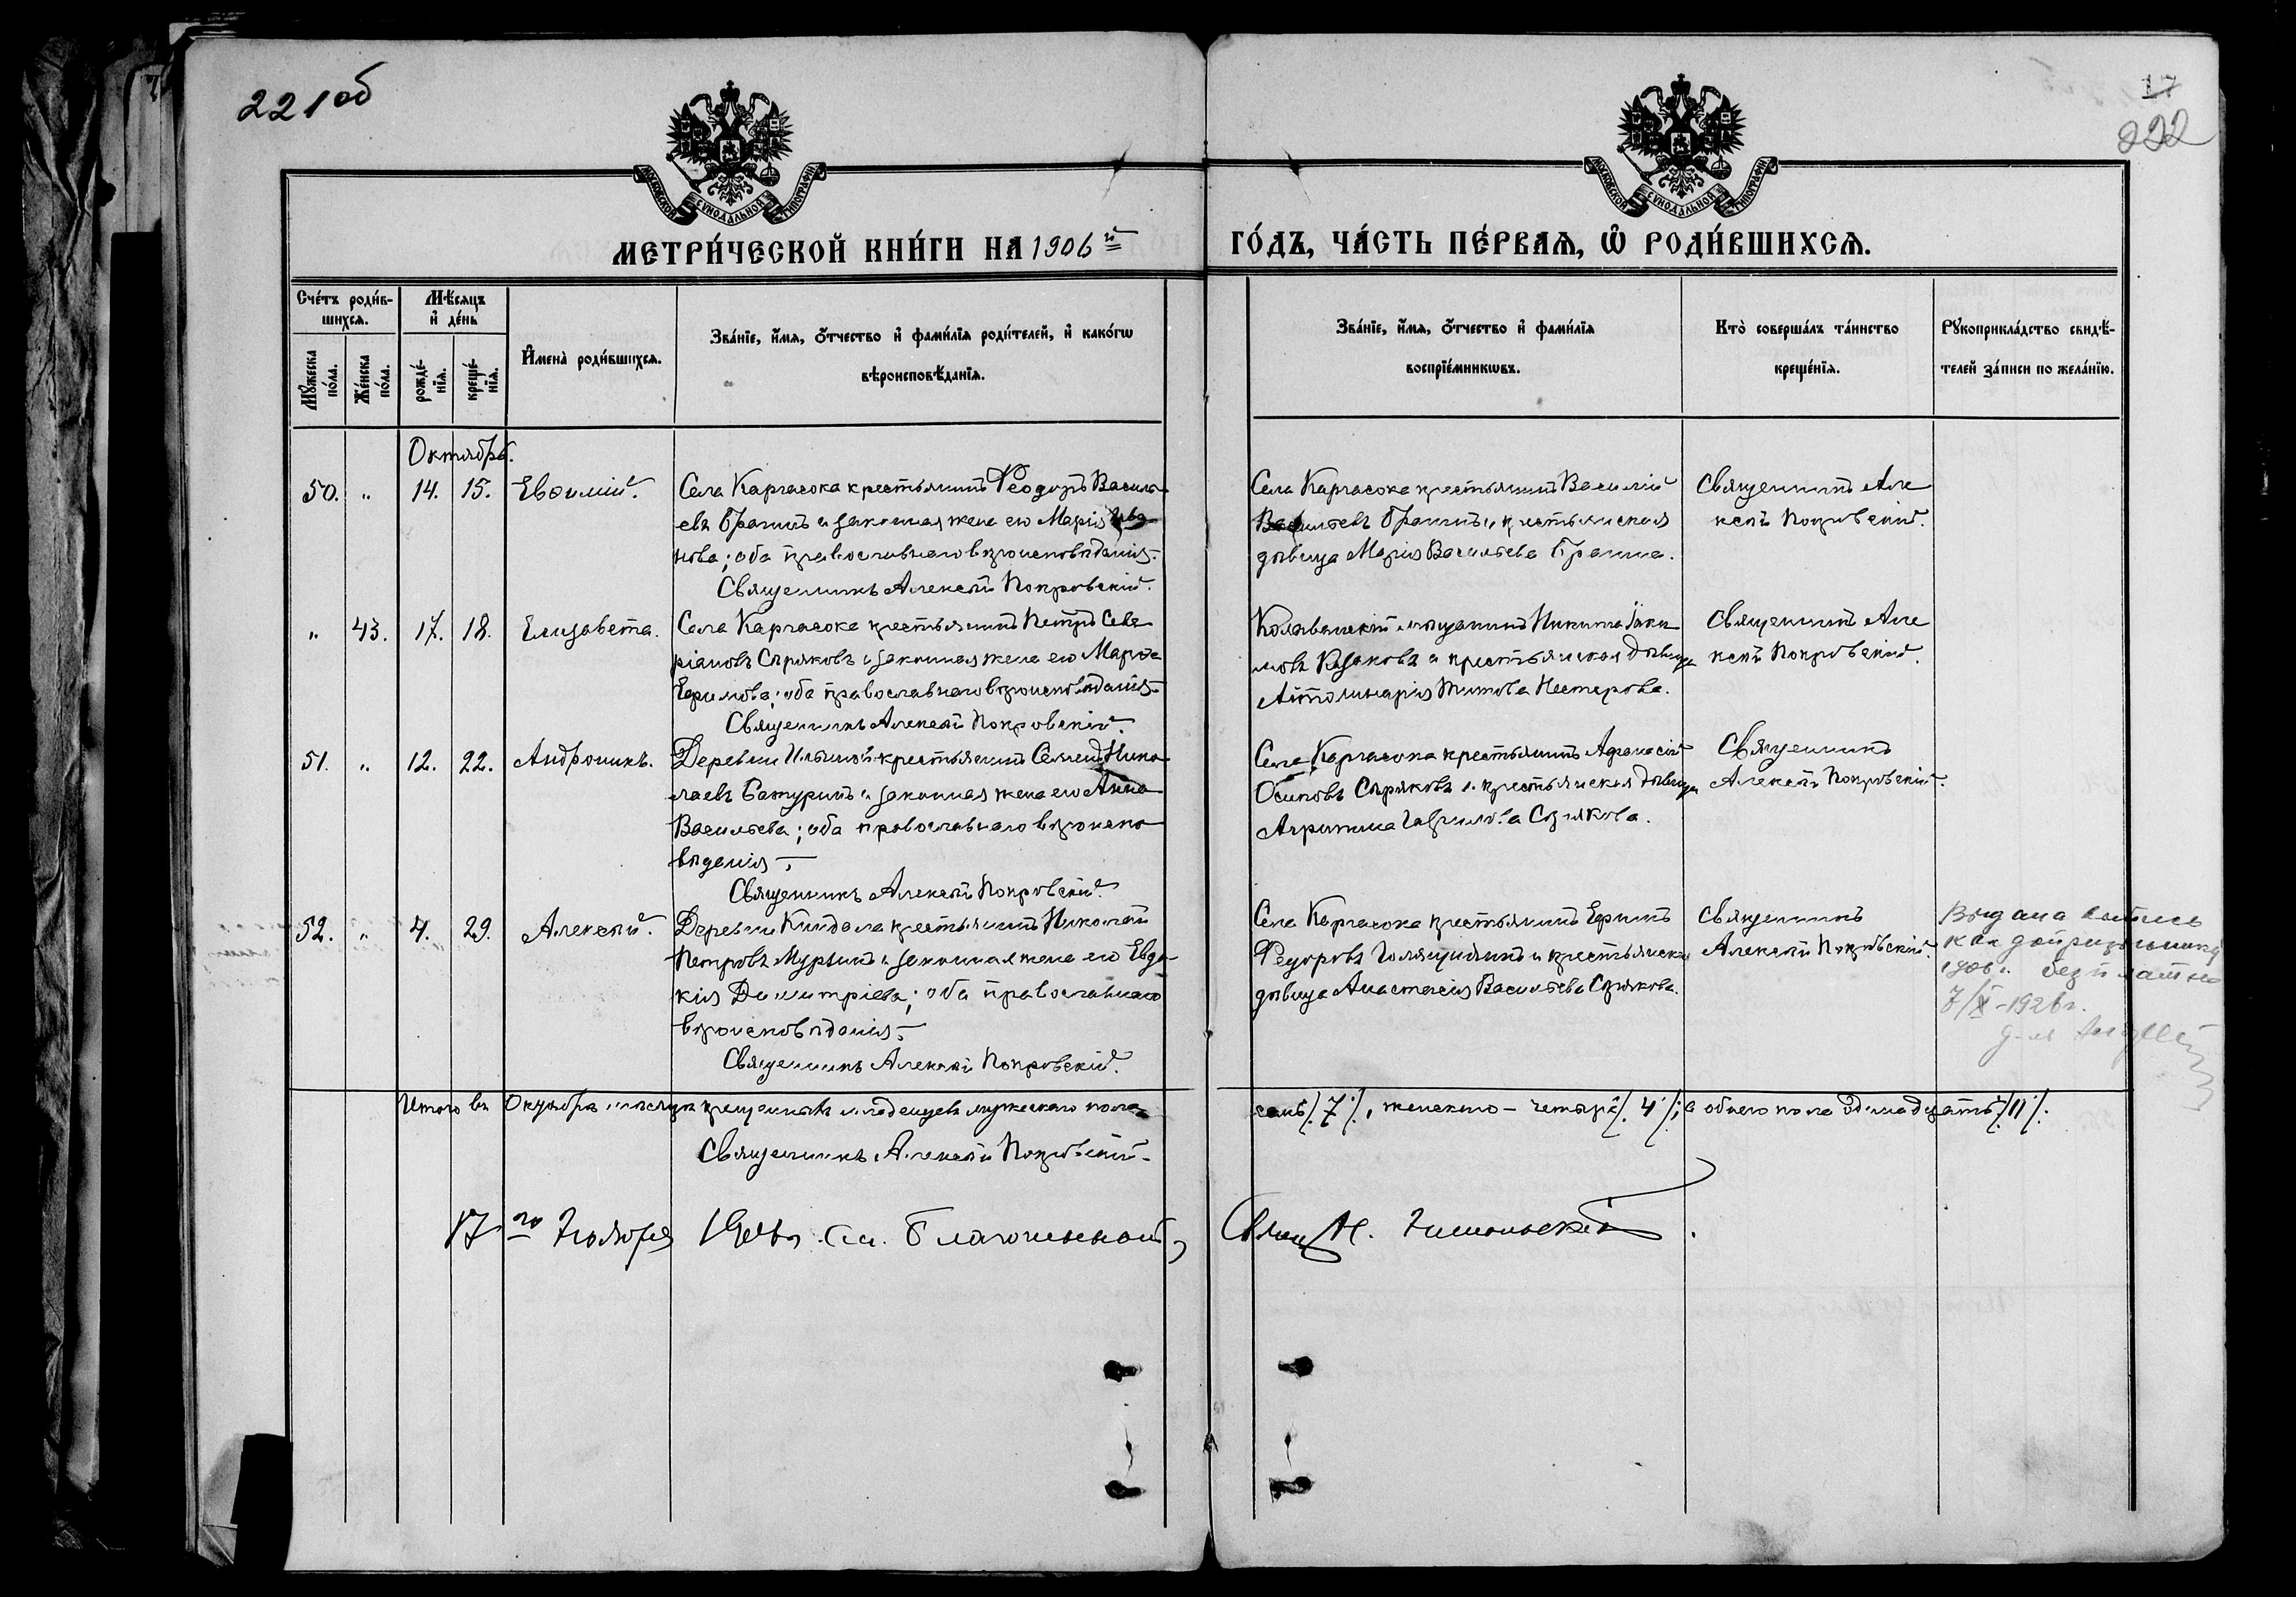 221 об
17
222
МОСКОВСКОЙ СѴНОДАЛЬНОЙ ТИПОГРАФІИ
МОСКОВСКОЙ СѴНОДАЛЬНОЙ ТИПОГРАФІИ
МЕТРИ́ЧЕСКОЙ КНИ́ГИ НА 1906 й
ГО́ДЪ, ЧА́СТЬ ПЕ́РВАЯ, Ѿ РОДИ́ВШИХСЯ.
Сче́тъ роди́в-
шихся.
Мѣ́сяцъ
и҆ де́нь
Мꙋ́жеска
по́ла.
Же́нска
по́ла.
рожде́-
нїя.
креще́-
нїя.
И҆мена̀ роди́вшихся.
Зва́нїе, и҆́мя, ѻ҆́тчество и҆ фамі́лїя роди́телей, и҆ како́гѡ
вѣроисповѣ́данїя.
Зва́нїе, и҆́мя, ѻ҆́тчество и҆ фамі́лїя
воспрїе́мникѡвъ.
Кто̀ соверша́лъ та́инство
креще́нїя.
Рꙋкоприкла́дство свидѣ́-
телей за́писи по жела́нїю.
Октябрь.
50. " 14. 15. Евѳимій.
Села Каргасока крестьянинъ Ѳеодоръ Василь-
евъ Брагинъ и законная жена его Марія
нова; оба православнаго вѣроисповѣданія.
Священникъ Алексѣй Покровскій.
Села Каргасока крестьянинъ Василій
Васильевъ Брагинъ и крестьянская
дѣвица Марія Васильева Брагина.
Священникъ Але
ксѣй Покровскій.
" 43. 17. 18. Елизавета.
Села Каргасока крестьянинъ Петръ Севе
ріановъ Сѣряковъ и законная жена его Марѳа
Ефимова; оба православнаго вѣроисповѣданія.
Священникъ Алексѣй Покровскій.
Колыванскій мѣщанинъ Никита Іаки
мовъ Казаковъ и крестьянская дѣвица
Аполинарія Титова Нестерова.
Священникъ Але
ксѣй Покровскій.
51. " 12. 22. Андроникъ.
Деревни Ильиной крестьянинъ Семенъ Нико
лаевъ Батуринъ и законная жена его Анна
Васильева; оба православнаго вѣроиспо
вѣданія.
Священникъ Алексѣй Покровскій.
Села Каргасока крестьянинъ Афанасій
Осиповъ Сѣряковъ и крестьянская дѣвица
Агрипина Гаврилова Сѣрякова.
Священникъ
Алексѣй Покровскій.
52. " 4. 29. Алексѣй.
Деревни Киндала крестьянинъ Николай
Петровъ Мурзинъ и законная жена его Евдо
кія Димитріева; оба православнаго
вѣроисповѣданія.
Священникъ Алексѣй Покровскій.
Села Каргасока крестьянинъ Ефимъ
Федоровъ Голящихинъ и крестьянская
дѣвица Анастасія Васильева Сѣрякова.
Священникъ
Алексѣй Покровскій.
Выдана выпись
как допризывнику
1906 г. бесплатно
7/X-1926 г.
Итого въ Октябрѣ мѣсяцѣ крещенныхъ младенцевъ мужескаго пола
семь /.7./, женскаго – четыре /.4./, а обоего пола одинадцать /.11./.
Священникъ Алексѣй Покровскій.
17 го Ноября 1906 г. Благочинный,
Свящ. Н. Никольскій.